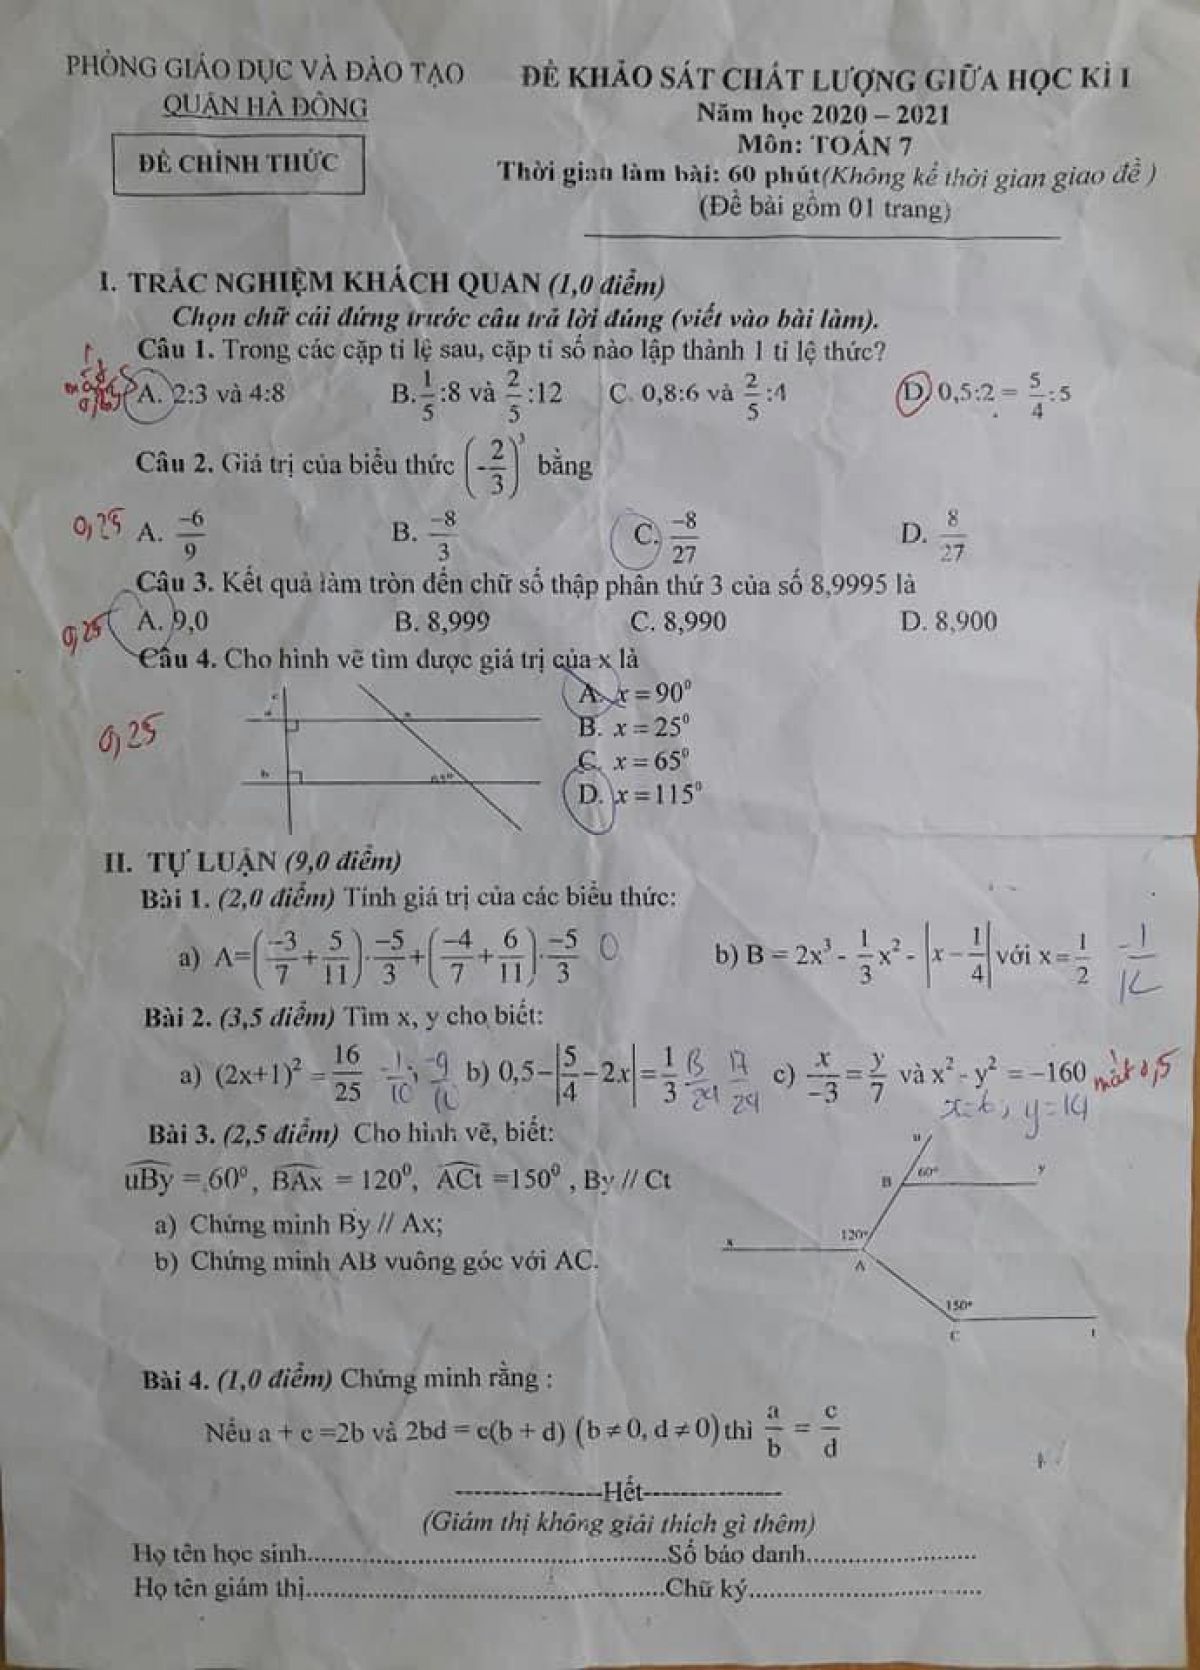 PHÒNG GIÁO DỤC VÀ ĐÀO TẠO
QUẬN HÀ ĐÔNG
ĐỀ CHÍNH THỨC
ĐỀ KHẢO SÁT CHẤT LƯỢNG GIỮA HỌC KÌ I
Năm học 2020 – 2021
Môn: TOÁN 7
Thời gian làm bài: 60 phút(Không kể thời gian giao đề )
(Đề bài gồm 01 trang)
I. TRẮC NGHIỆM KHÁCH QUAN (1,0 điểm)
Chọn chữ cái đứng trước câu trả lời đúng (viết vào bài làm).
Câu 1. Trong các cặp tỉ lệ sau, cặp tỉ số nào lập thành 1 tỉ lệ thức?
mất 0,25 A. 2:3 và 4:8 B. 1/5 :8 và 2/5 :12 C. 0,8:6 và 2/5 :4 D. 0,5:2 = 5/4 :5
Câu 2. Giá trị của biểu thức (-2/3)³ bằng
0,25 A. -6/9 B. -8/3 C. -8/27 D. 8/27
Câu 3. Kết quả làm tròn đến chữ số thập phân thứ 3 của số 8,9995 là
0,25 A. 9,0 B. 8,999 C. 8,990 D. 8,900
Câu 4. Cho hình vẽ tìm được giá trị của x là
0,25
c
a
b
65°
A. x = 90⁰
B. x = 25⁰
C. x = 65⁰
D. x = 115⁰
II. TỰ LUẬN (9,0 điểm)
Bài 1. (2,0 điểm) Tính giá trị của các biểu thức:
a) A=(-3/7 + 5/11).-5/3 + (-4/7 + 6/11).-5/3 0 b) B = 2x³ - 1/3 x² - |x - 1/4| với x = 1/2
Bài 2. (3,5 điểm) Tìm x, y cho biết:
a) (2x+1)² = 16/25 -1/10; -9/10 b) 0,5-|5/4 -2x| = 1/3 13/24 17/24 c) x/-3 = y/7 và x² - y² = -160 mất 0,5
x=6, y=14
Bài 3. (2,5 điểm) Cho hình vẽ, biết:
uBy = 60⁰, BAx = 120⁰, ACt =150⁰ , By // Ct
a) Chứng minh By // Ax;
b) Chứng minh AB vuông góc với AC.
u
B 60° y
x 120°
A
150°
C t
Bài 4. (1,0 điểm) Chứng minh rằng :
Nếu a + c =2b và 2bd = c(b + d) (b ≠ 0, d ≠ 0) thì a/b = c/d
----------------Hết---------------
(Giám thị không giải thích gì thêm)
Họ tên học sinh..............................................Số báo danh......................
Họ tên giám thị..............................................Chữ ký..............................